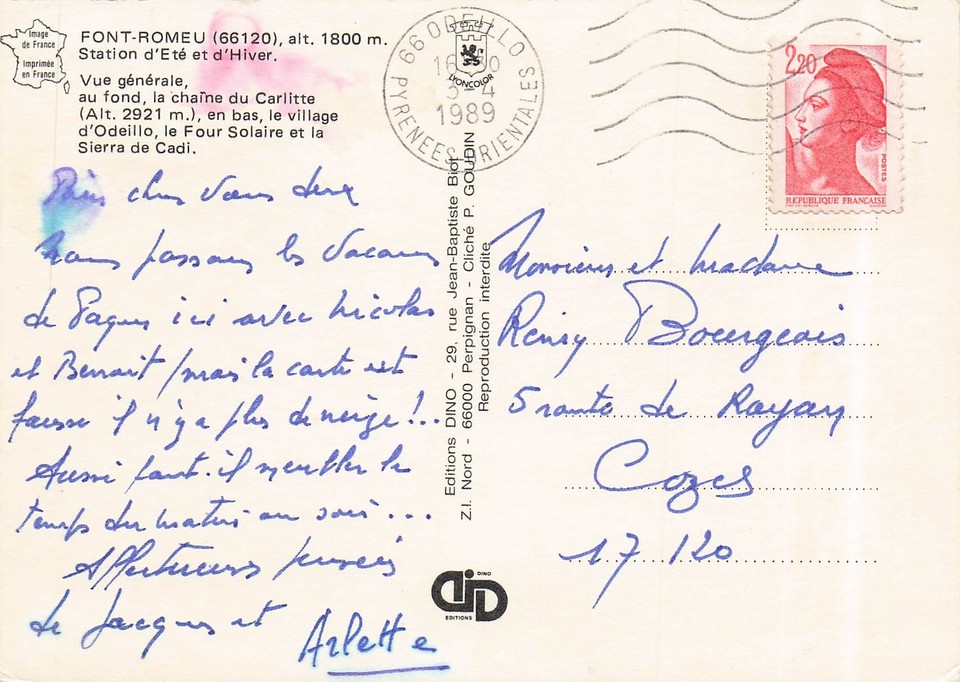 Image
de France
Imprimée
en France
FONT-ROMEU (66120), alt. 1800 m.
Station d'Eté et d'Hiver.
Vue générale,
au fond, la chaîne du Carlitte
(Alt. 2921 m.), en bas, le village
d'Odeillo, le Four Solaire et la
Sierra de Cadi.
chers vous deux
Nous passons les vacances
de Paques ici avec Nicolas
et Benoit / mais la carte est
fausse il n'y a plus de neige !..
Aussi faut-il meubler le
temps du matin au soir...
Affectueuses pensées
de Jacques et
Arlette
66 ODEILLO
16 30
3-4
1989
PYRENEES ORIENTALES
LYONCOLOR
Editions DINO - 29, rue Jean-Baptiste Biot
Z.I. Nord - 66000 Perpignan - Cliché P. GOUDIN
Reproduction interdite
DINO
EDITIONS
2,20
POSTES
REPUBLIQUE FRANÇAISE
Monsieur et Madame
Rémy Bourgeois
5 route de Royan
Cozes
17 120